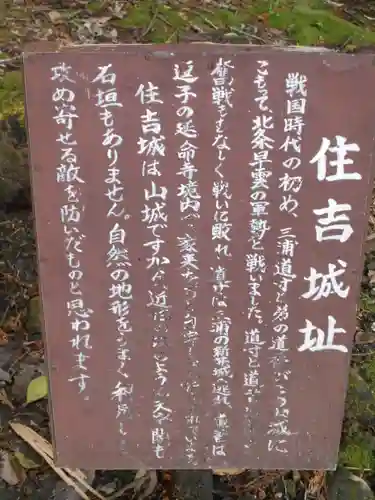 住吉城址
戦国時代の初め、三浦道寸と弟の道香がこの城に
こもって、北条早雲の軍勢と戦いました。道寸と道香は
奮戦もむなしく戦いに敗れ、道寸は三浦の新井城へ逃れ、道香は
逗子の延命寺境内で家来たち
住吉城は、山城ですから、近世の城のような天守閣も
石垣もありません。自然の地形をうまく利用し
攻め寄せる敵を防いだものと思われます。